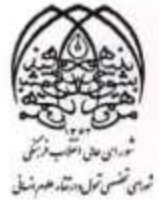 ۱۳۶۳
شورای عالی انقلاب فرهنگی
شورای تخصصی تحول و ارتقاء علوم انسانی